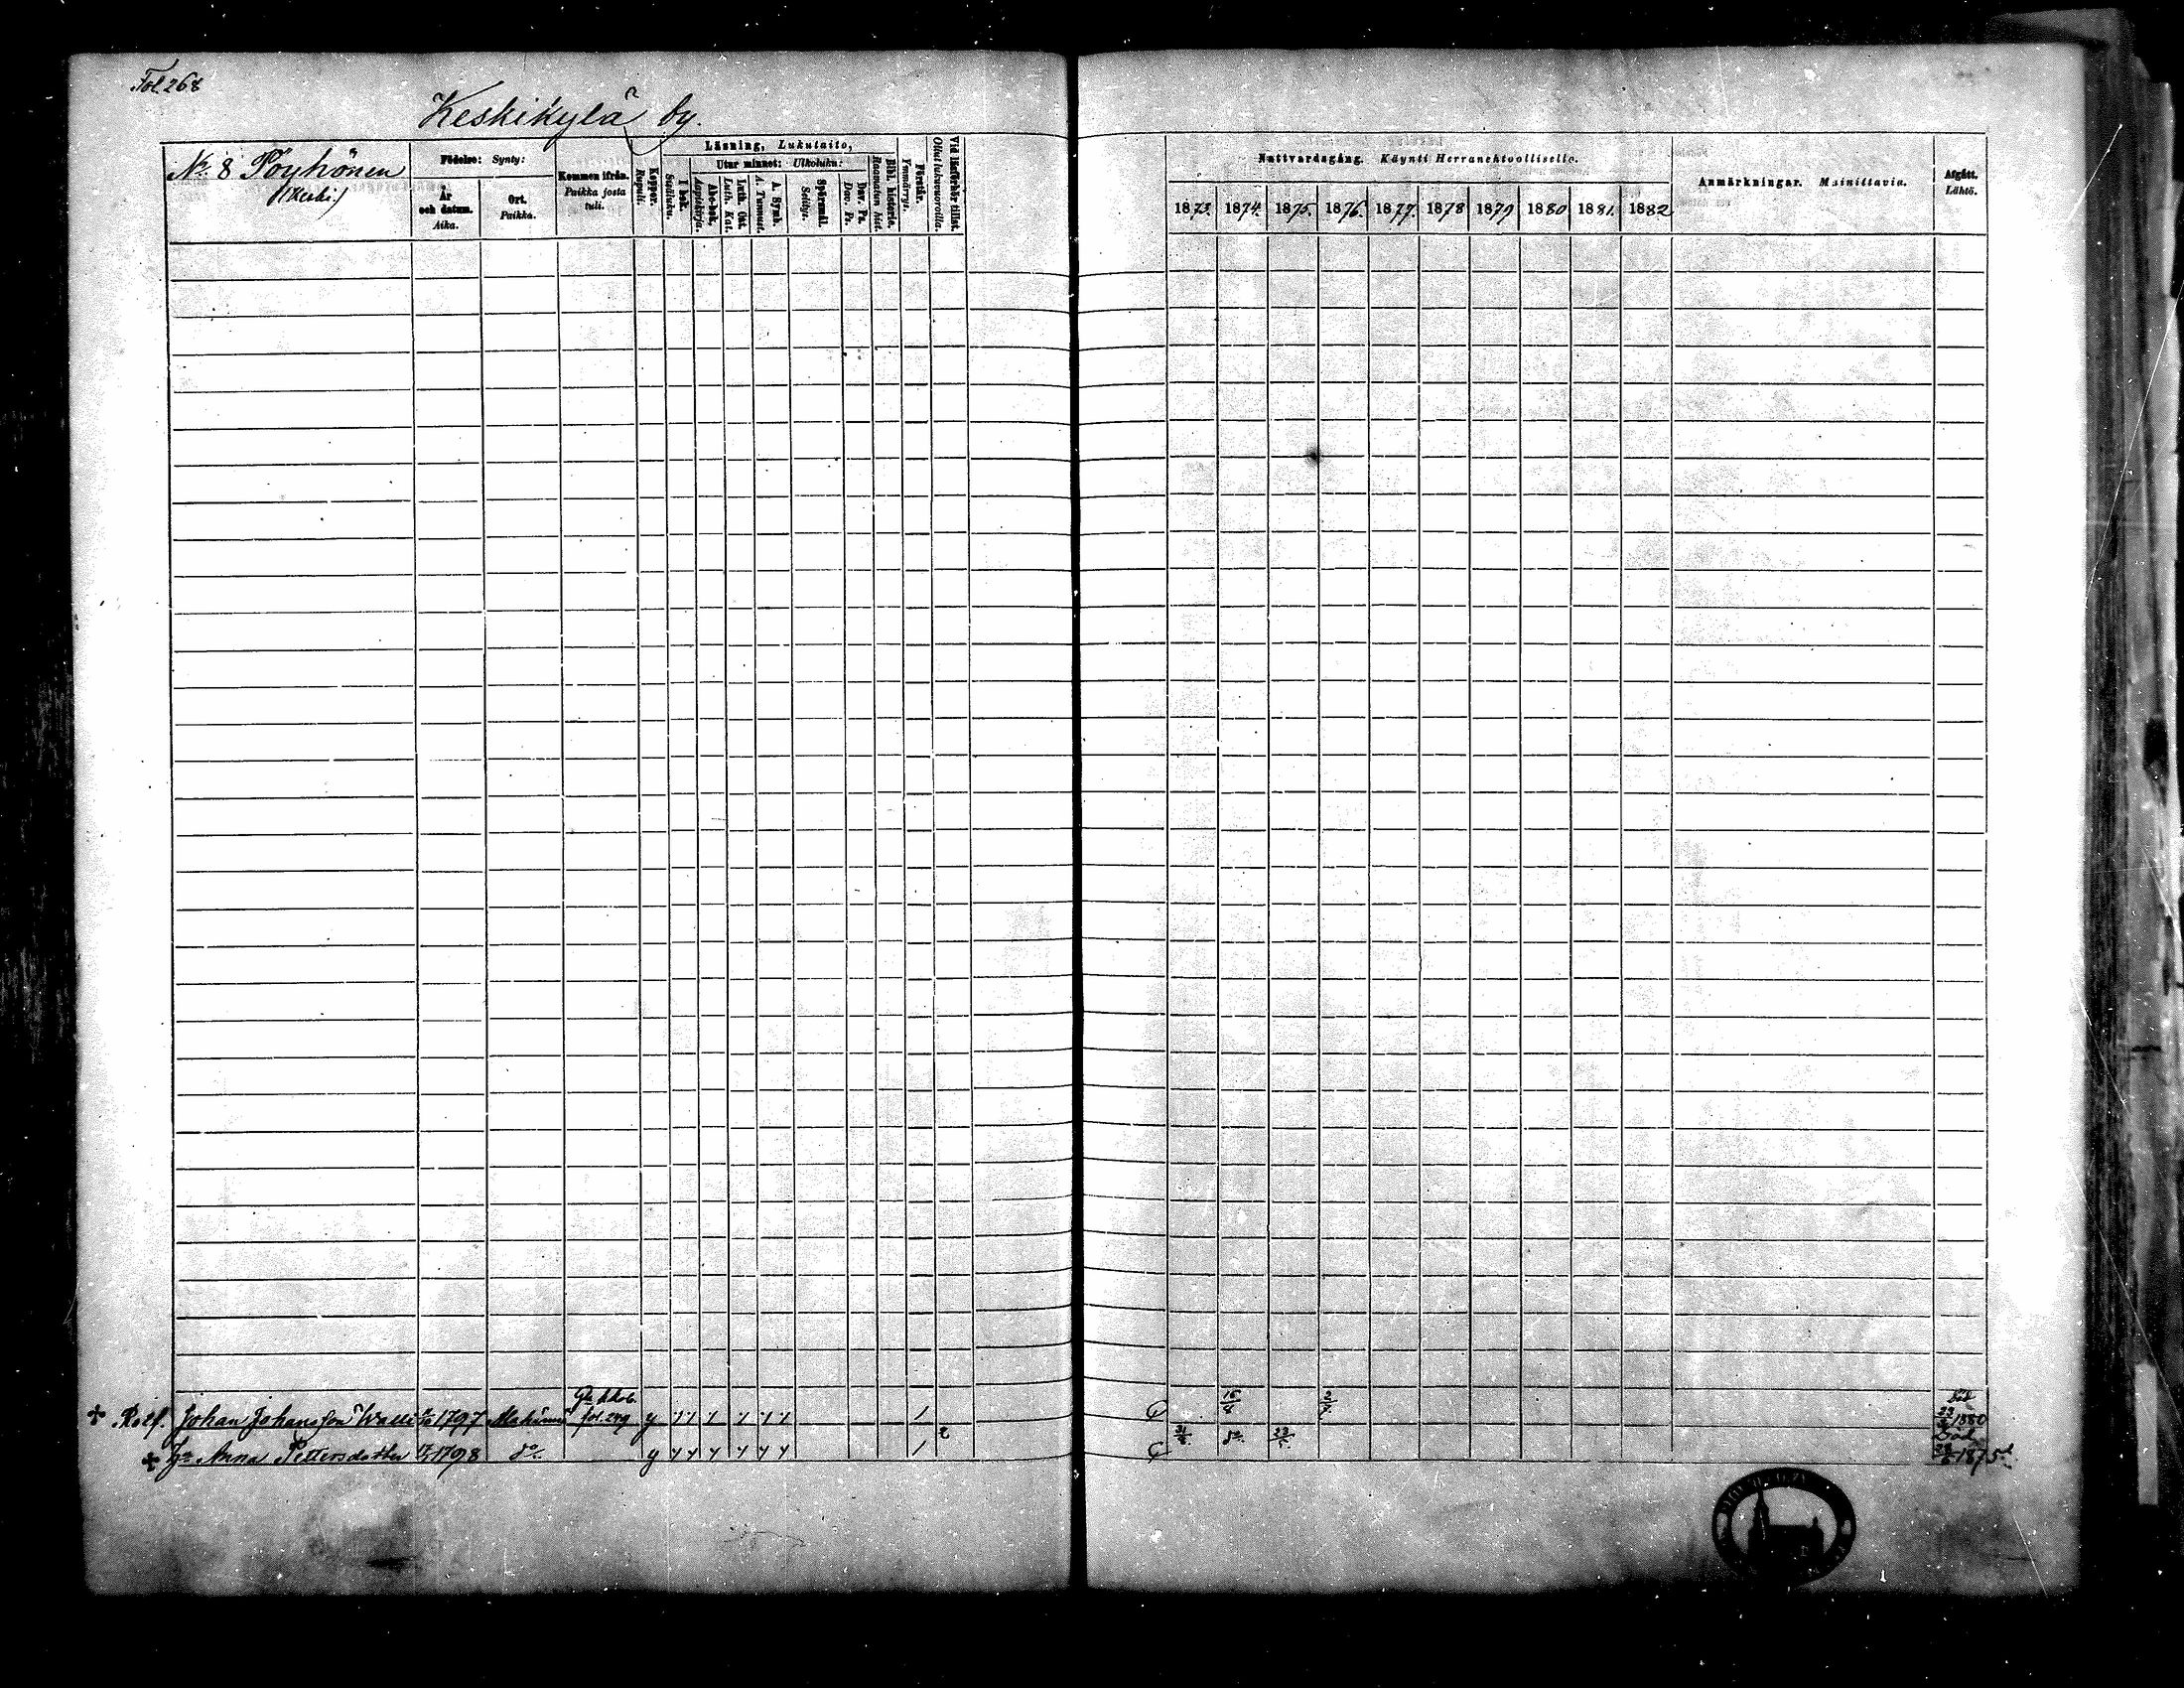 Fol. 268
Keskikylä by.
No 8 Pöyhönen
Födelse: Synty:
År och datum. Aika.
Ort. Paikka.
Kommen ifrån. Paikka josta tuli.
Koppor. Rupuli.
Läsning, Lukutaito,
I bok. Sisäluku.
Utur minnet: Ulkoluku:
Abc-bok. Aapiskirja.
Luth. Kat.
A. Symb. A. Tunnust.
Spörsmål. Selitys.
Dav. Ps. Dav. Ps.
Bibl. historie. Raamatun hist.
Förstår. Ymmärrys.
Vid läsförhör tillst. Ollut lukuvuorolla.
Nattvardsgång. Käynti Herranehtoollisella.
1873. 1874. 1875. 1876. 1877. 1878 1879 1880 1881. 1882
Anmärkningar. Mainittavia.
Afgått. Lähtö.
Johan Johansson Walli 1797 y 1 1880
Hu Anna Pettersdotter 1798 do y 1 2 do Död 1875